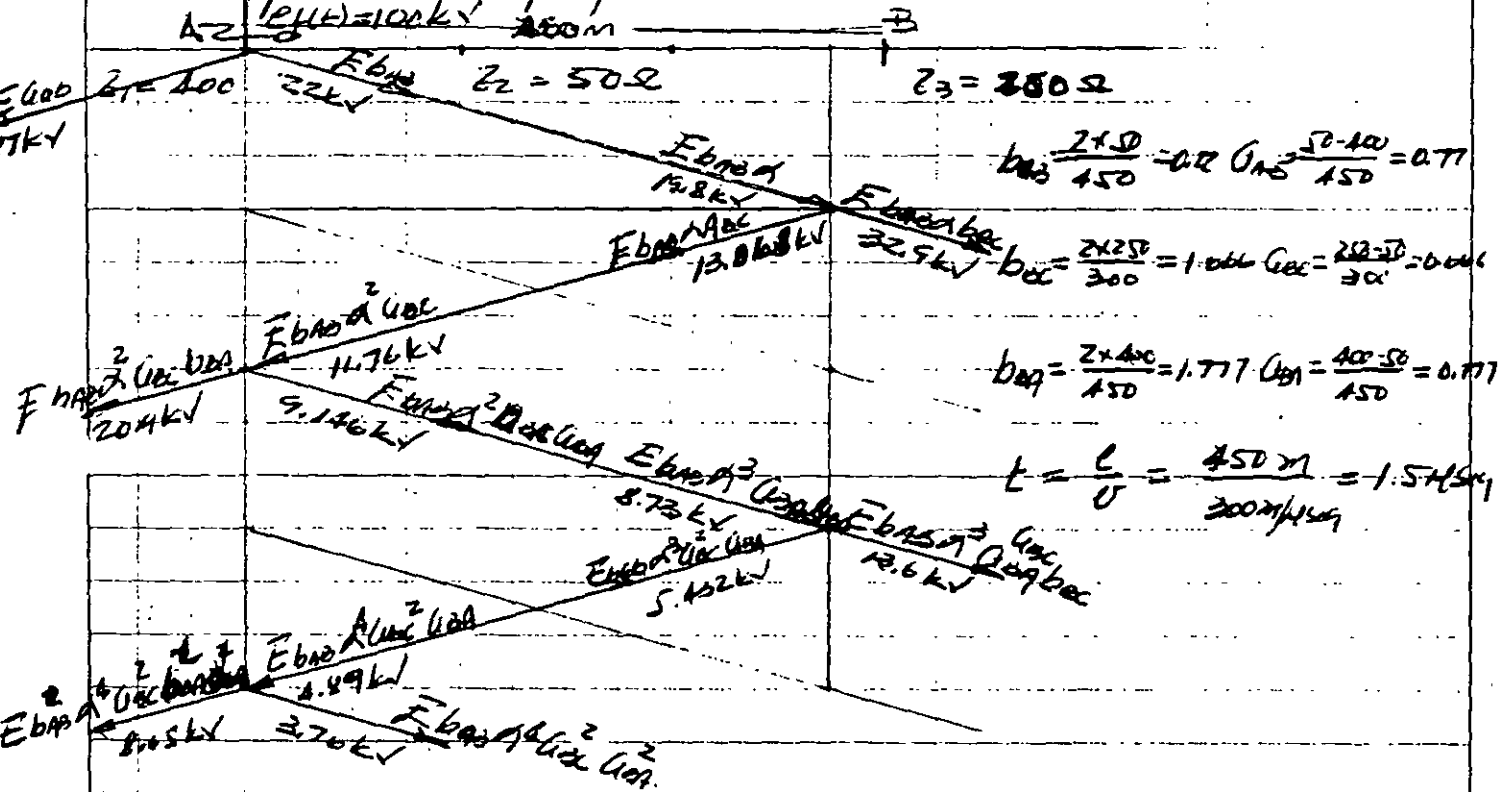 A e(t)=100kV 450m B
Z1 = 400 Z2 = 50Ω Z3 = 250Ω
E bAB
22kV
E bAB α
19.8kV
bAB = 2×50/450 = 0.22 aAB = 50-400/450 = 0.77
E bAB α bBC
32.9kV
E bAB α aBC
bBC = 2×250/300 = 1.666 aBC = 250-50/300 = 0.666
E bAB α² aBC
11.76kV
E bAB α² aBC bBA
20.9kV
bBA = 2×400/450 = 1.777 aBA = 400-50/450 = 0.777
E bAB α² aBC aBA
9.146kV
E bAB α³ aBC aBA
8.23kV
t = l/v = 450m/300m/μseg = 1.5μseg
E bAB α³ aBC aBA bBC
13.6kV
E bAB α³ aBC² aBA
5.432kV
E bAB α⁴ aBC² aBA
4.89kV
3.76kV
E bAB α⁴ aBC² aBA²